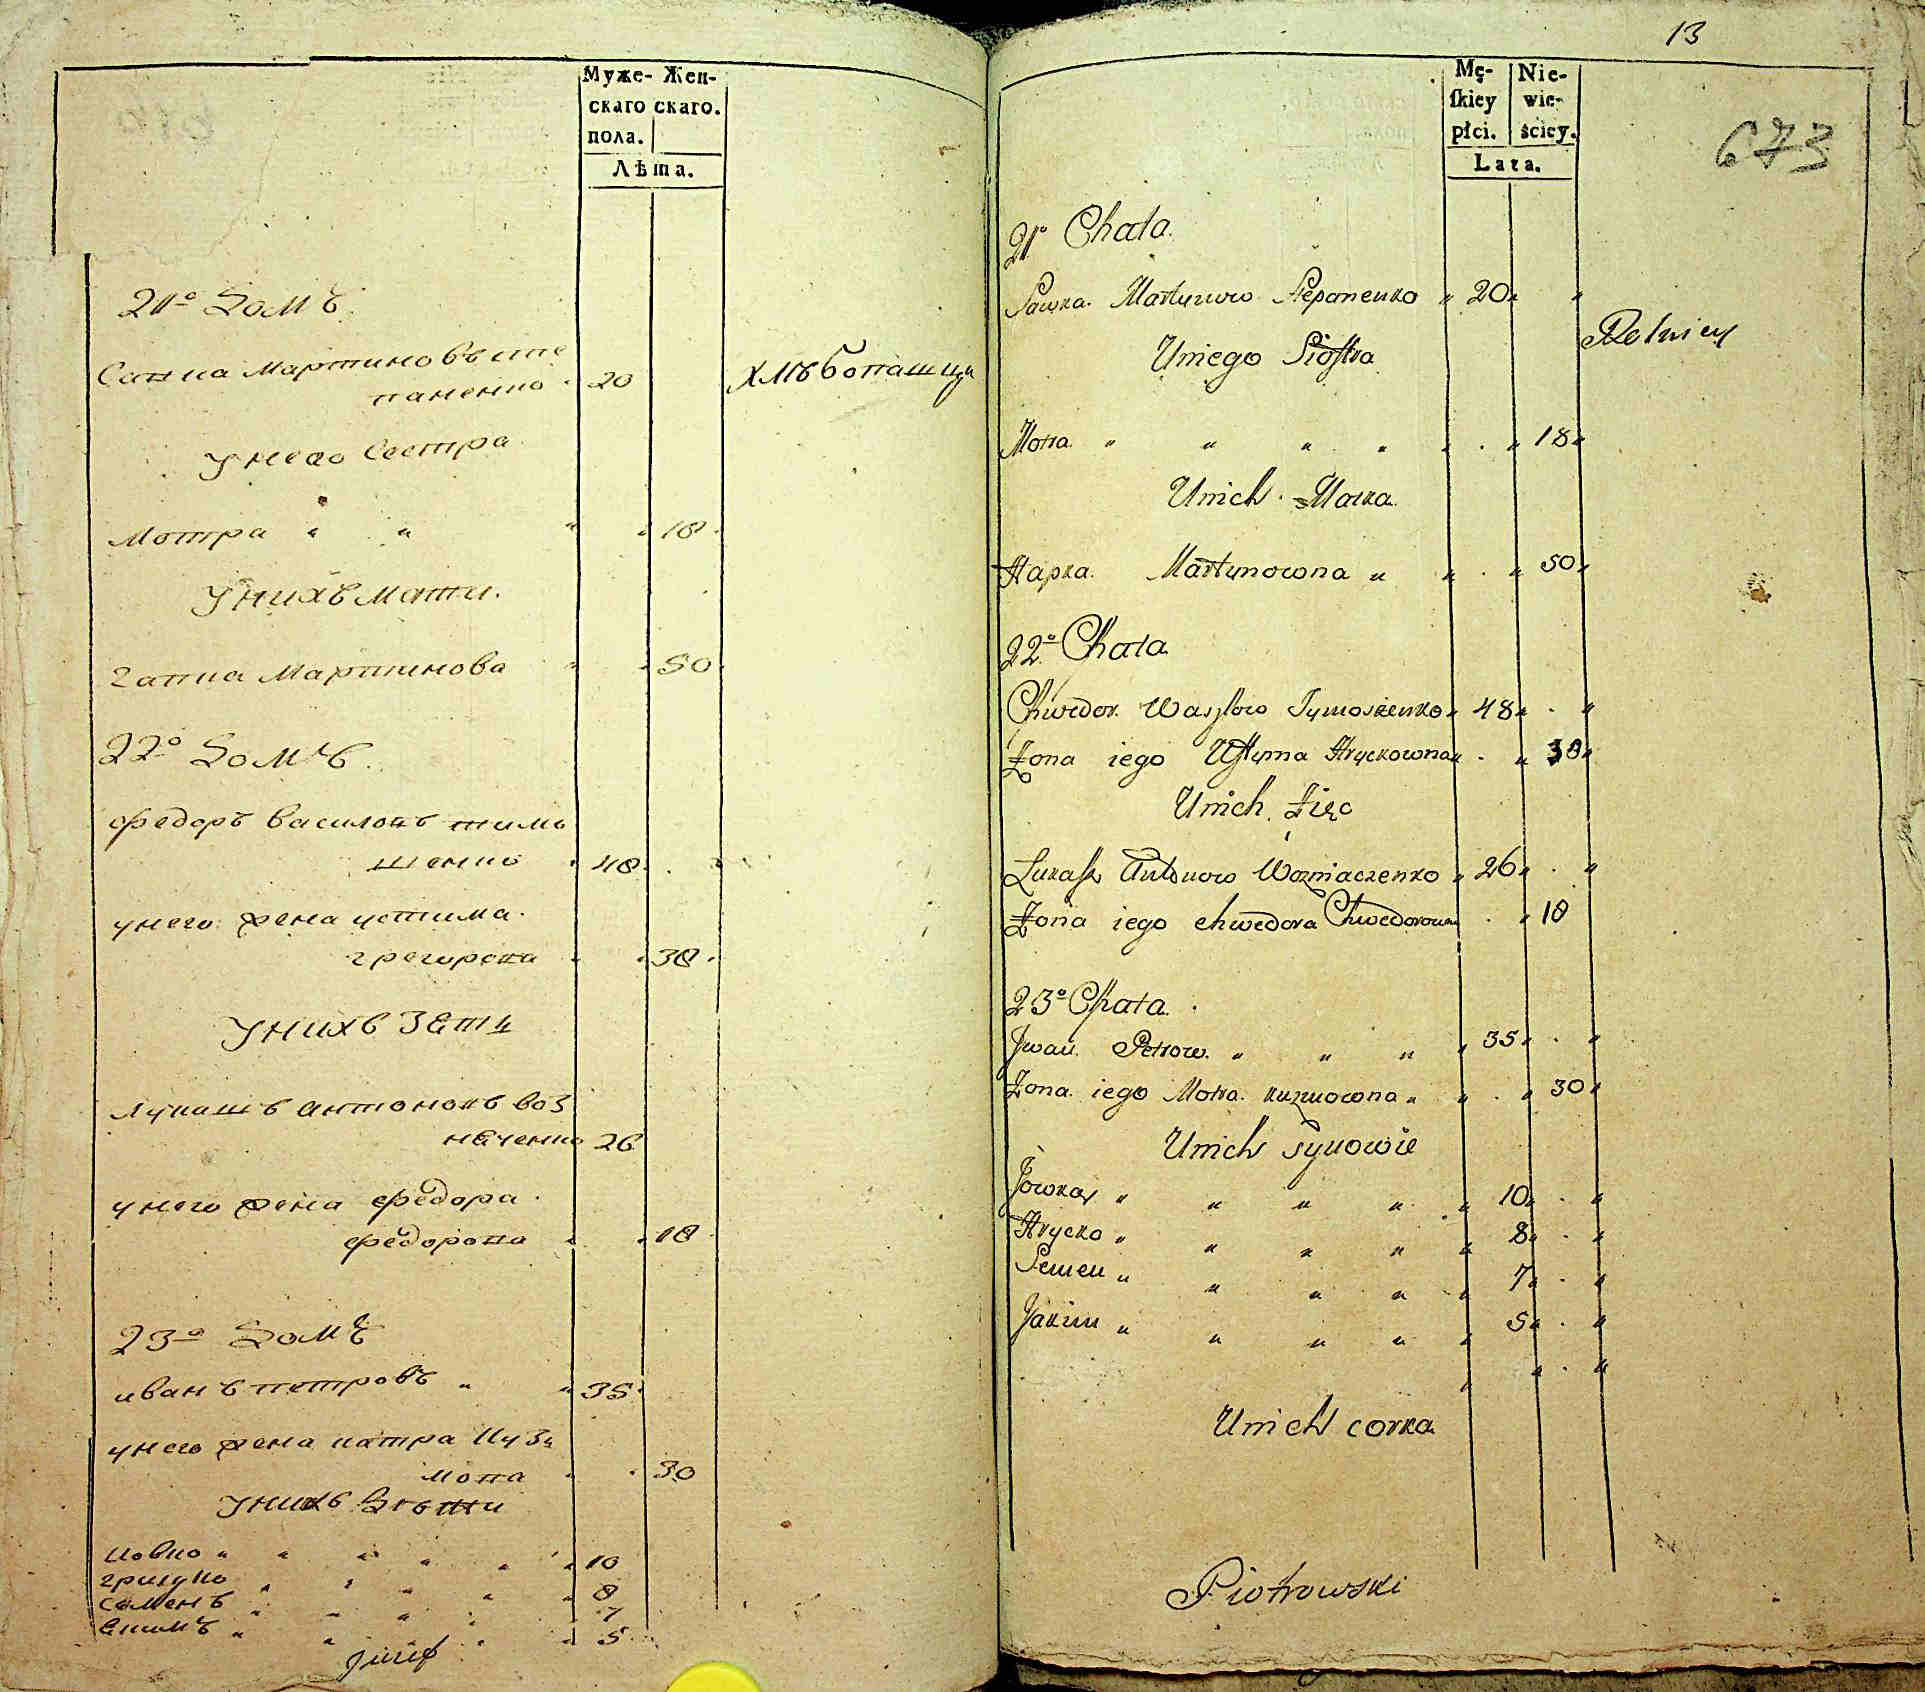 Муже- Жен-
скаго скаго.
пола.
Лѣта.
21º Домъ
Сапка Мартиновъ сте
паненко 20 хлѣбопашци
Унего Сестра
Мотра " " " " 18
Унихъ мати.
гапка Мартинова " " 50
22º Домъ
федоръ василовъ тимо
шенко 48
унего жена устима
грегорова 38
Унихъ зять
лукашъ антоновъ воз
няченко 26
унего жена федора
федорова 18
23º Домъ
иванъ петровъ " " 35
унего жена матра кузь
мова 30
Унихъ дѣти
иовко " " " " " " 10
грицко " " " " " 8
семенъ " " " " 7
екимъ " " " " 5
13
673
Mę- Nie-
skiey wie-
płci. ściey.
Lata.
21º Chata
Sawka Martynow Stepanenko " 20 "
Rolnicy
Uniego Siostra
Motra " " " " " 18
Unich Matka
Hapka Martynowna " " " 50
22º Chata
Chwedor Wasylow Tymoszenko " 48 "
Żona iego Ustyma Hryckowna " " 38
Unich Zięc
Łukasz Antonow Wozniaczenko " 26 "
Żona iego chwedora Chwedorowna " 18
23º Chata
Jwan Petrow " " " " 35 "
Żona iego Motra kuzmowna " " " 30
Unich synowie
Jowka " " " " " 10 "
Hrycko " " " " " 8 "
Semen " " " " " 7 "
Jakim " " " " " 5 "
Unich corka
Piotrowski